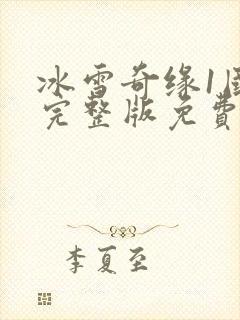 冰雪奇缘1
完整版免費
李夏至